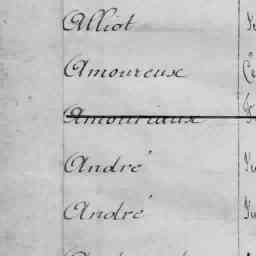 Alliot
Amoureux
Amouriaux
André
André